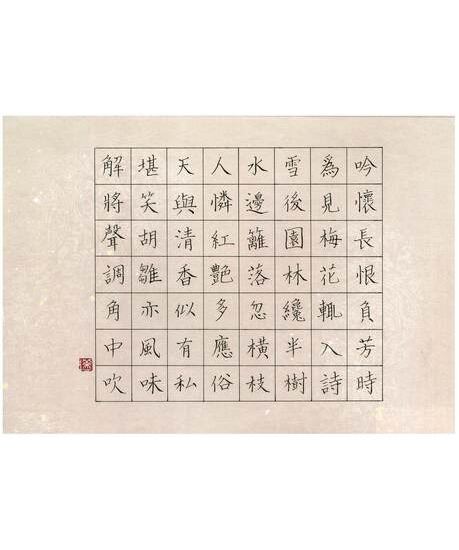 吟懷長恨負芳時
為見梅花輒入詩
雪後園林纔半樹
水邊籬落忽橫枝
人憐紅艷多應俗
天與清香似有私
堪笑胡雛亦風味
解將聲調角中吹